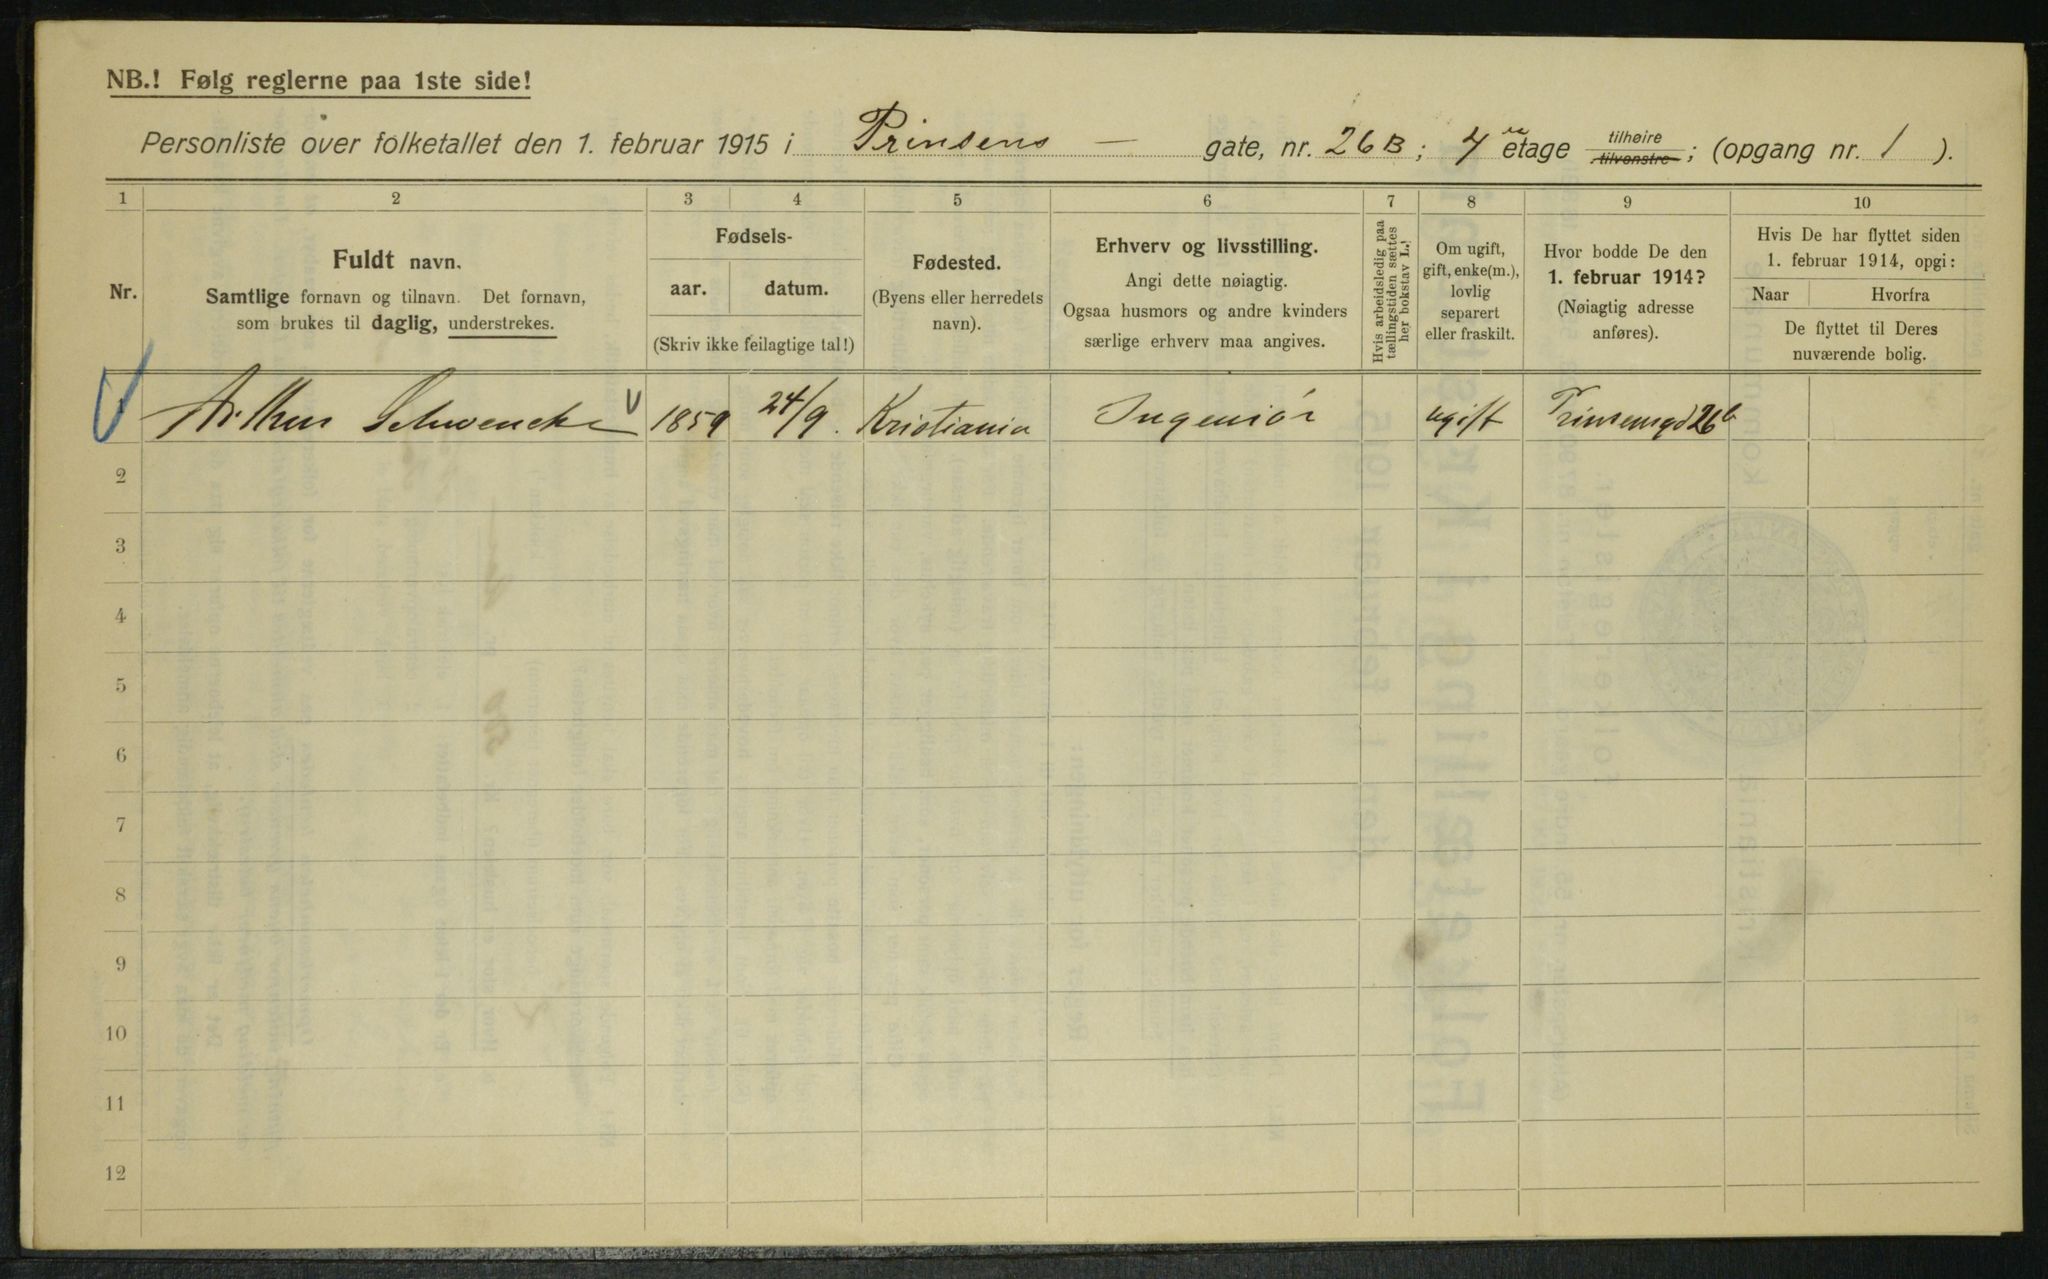 NB.! Følg reglerne paa 1ste side!
Personliste over folketallet den 1. februar 1915 i Prinsens — gate, nr. 26B; 4 etage tilhøire tilvenstre; (opgang nr. 1 ).
1 2 3 4 5 6 7 8 9 10
Nr.
Fuldt navn.
Samtlige fornavn og tilnavn. Det fornavn,
som brukes til daglig, understrekes.
Fødsels-
aar. datum.
(Skriv ikke feilagtige tal!)
Fødested.
(Byens eller herredets
navn).
Erhverv og livsstilling.
Angi dette nøiagtig.
Ogsaa husmors og andre kvinders
særlige erhverv maa angives.
Hvis arbeidsledig paa
tællingstiden sættes
her bokstav L.!
Om ugift,
gift, enke(m.),
lovlig
separert
eller fraskilt.
Hvor bodde De den
1. februar 1914?
(Nøiagtig adresse
anføres).
Hvis De har flyttet siden
1. februar 1914, opgi:
Naar Hvorfra
De flyttet til Deres
nuværende bolig.
Arthur Schwencke 1859 24/9. Kristiania Ingeniør ugift Prinsensgd 26b
2
3
4
5
6
7
8
9
10
11
12